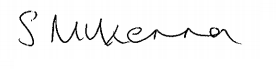 S McKenna